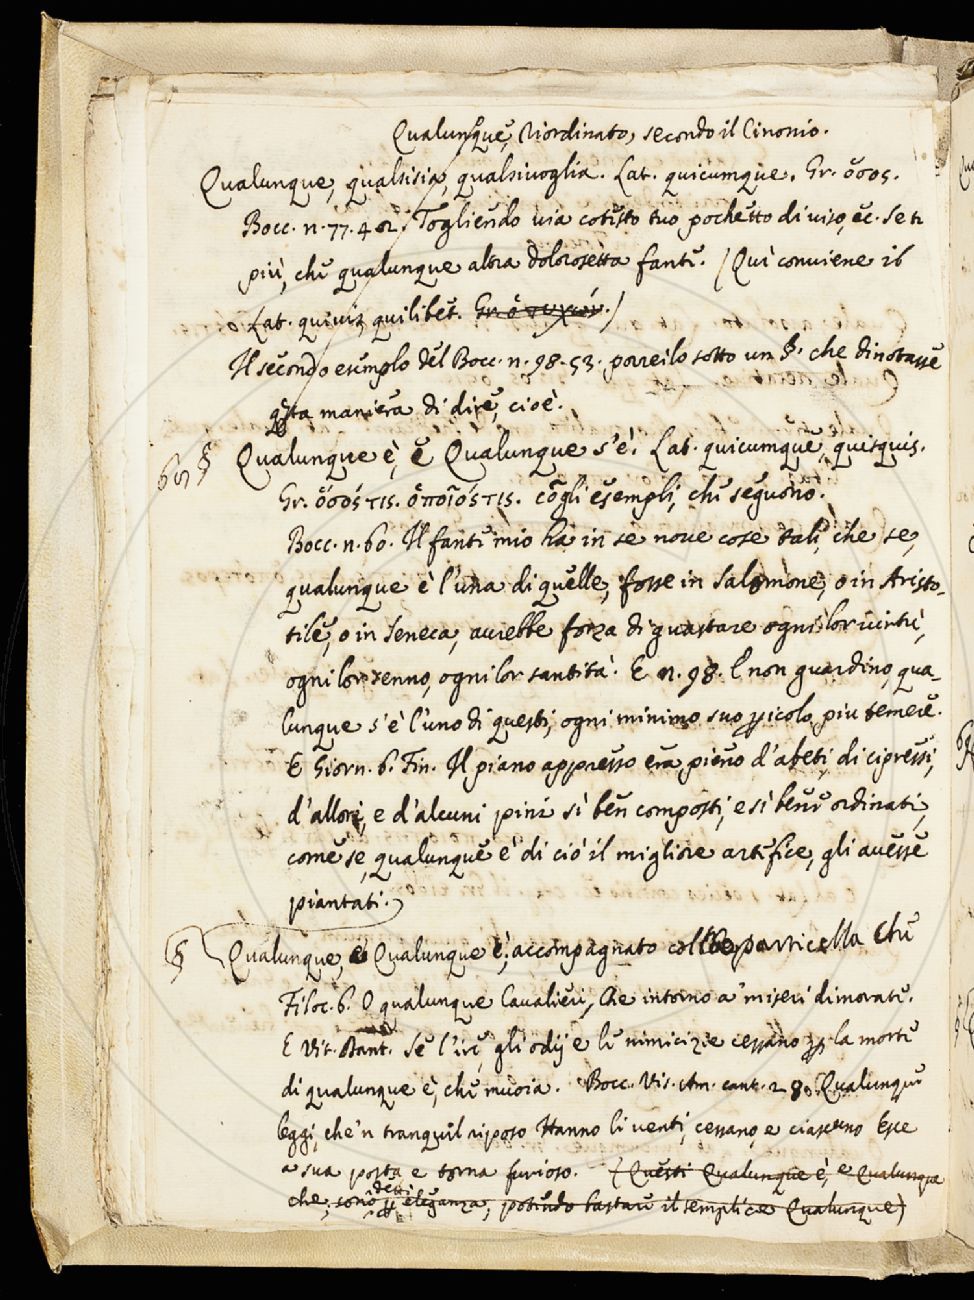 Qualunque, Riordinato, secondo il Cinonio.
Qualunque, qualsisia, qualsivoglia. Lat. quicumque. Gr. ὅσος.
Bocc. n. 77. 42. Togliendo via cotesto tuo pochetto di viso, ec. se tu
più, che qualunque altra dolorosetta fante. (Qui conviene il
Lat. quivis, quilibet. Gr. ὁ τυχών.)
Il secondo esemplo del Bocc. n. 98. 53. porreilo sotto un §. che dinotasse
qsta maniera di dire, cioè.
§ Qualunque è, e Qualunque s'è. Lat. quicumque, quisquis.
Gr. ὅσός τις. ὁποῖός τις. cogli esempli, che seguono.
Bocc. n. 60. Il fante mio ha in se nove cose tali, che se,
qualunque è l'una di quelle, fosse in Salomone, o in Aristo-
tile, o in Seneca, avrebbe forza di guastare ogni lor virtù,
ogni lor senno, ogni lor santità. E n. 98. E non guardino, qua-
lunque s'è l'uno di questi, ogni minimo suo pricolo, piu temere.
E Giorn. 6. Fin. Il piano appresso era pieno d'abeti, di cipressi,
d'allori, e d'alcuni pini sì ben composti, e sì bene ordinati,
come se, qualunque è di ciò il migliore artefice, gli avesse
piantati.
§ Qualunque, e Qualunque è, accompagnato colla particella Che
Filoc. 6. O qualunque Cavalieri, che intorno a' miseri dimorate.
E Vit. Dant. Se l'ire, gli odij e le nimicizie cessano p la morte
di qualunque è, che muoia. Bocc. Vis. Am. cant. 28. Qualunque
leggi, che 'n tranquil riposo Hanno li venti, cessano, e ciascuno Esce
a sua posta e torna furioso. (Questi Qualunque è, e Qualunque
che, sono p eleganza, potendo bastare il semplice Qualunque)